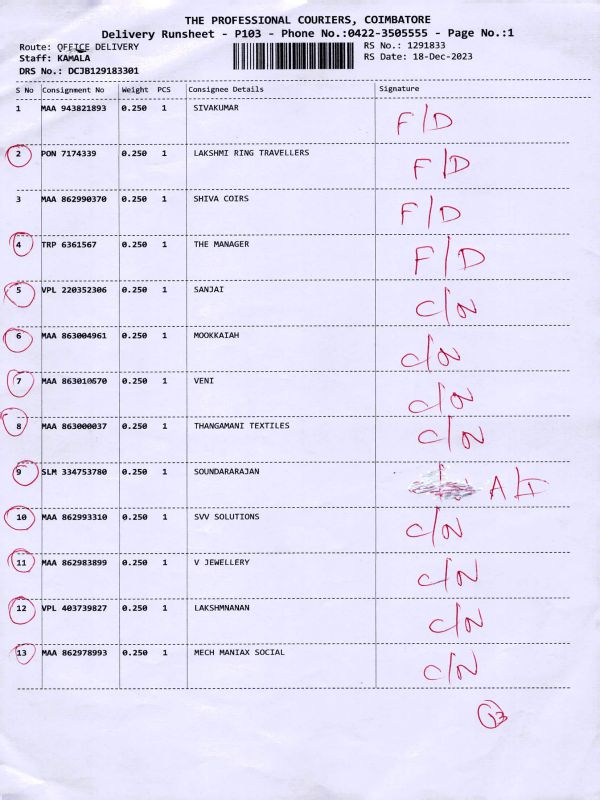 THE PROFESSIONAL COURIERS, COIMBATORE
Delivery Runsheet - P103 - Phone No.:0422-3505555 - Page No.:1
Route: OFFICE DELIVERY RS No.: 1291833
Staff: KAMALA RS Date: 18-Dec-2023
DRS No.: DCJB129183301
S No Consignment No Weight PCS Consignee Details Signature
1 MAA 943821893 0.250 1 SIVAKUMAR F/D
2 PON 7174339 0.250 1 LAKSHMI RING TRAVELLERS F/D
3 MAA 862990370 0.250 1 SHIVA COIRS F/D
4 TRP 6361567 0.250 1 THE MANAGER F/D
5 VPL 220352306 0.250 1 SANJAI C/N
6 MAA 863004961 0.250 1 MOOKKAIAH C/N
7 MAA 863010670 0.250 1 VENI C/N
8 MAA 863000037 0.250 1 THANGAMANI TEXTILES C/N
9 SLM 334753780 0.250 1 SOUNDARARAJAN
10 MAA 862993310 0.250 1 SVV SOLUTIONS C/N
11 MAA 862983899 0.250 1 V JEWELLERY C/N
12 VPL 403739827 0.250 1 LAKSHMNANAN C/N
13 MAA 862978993 0.250 1 MECH MANIAX SOCIAL C/N
13